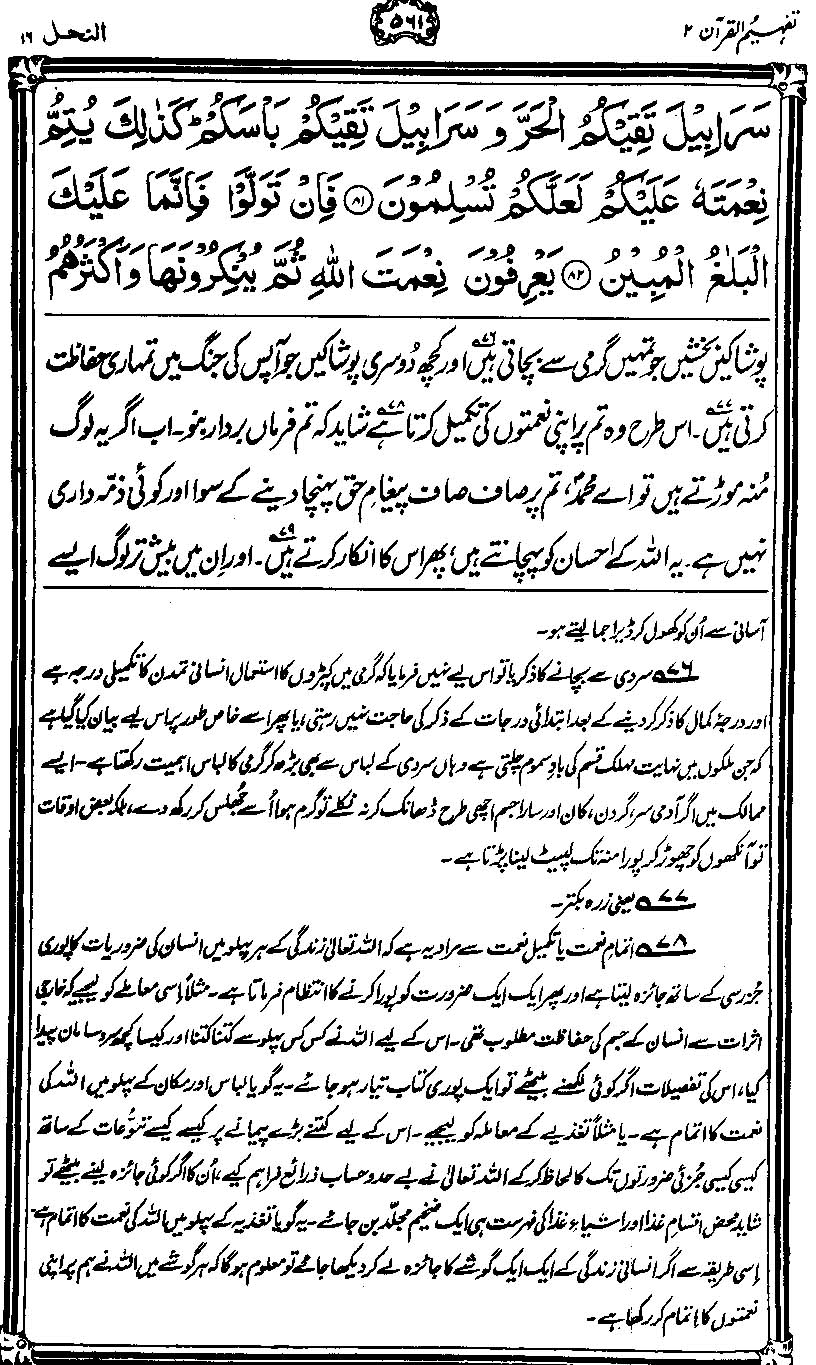 تفہیم القرآن ۲
۵۶۱
النحل ۱۶
سَرَابِیْلَ تَقِیْكُمُ الْحَرَّ وَ سَرَابِیْلَ تَقِیْكُمْ بَاْسَكُمْ ؕ كَذٰلِكَ یُتِمُّ
نِعْمَتَهٗ عَلَیْكُمْ لَعَلَّكُمْ تُسْلِمُوْنَ ﴿۸۱﴾ فَاِنْ تَوَلَّوْا فَاِنَّمَا عَلَیْكَ
الْبَلٰغُ الْمُبِیْنُ ﴿۸۲﴾ یَعْرِفُوْنَ نِعْمَتَ اللّٰهِ ثُمَّ یُنْكِرُوْنَهَا وَ اَكْثَرُهُمُ
پوشاکیں بخشیں جو تمہیں گرمی سے بچاتی ہیں۷۶ اور کچھ دُوسری پوشاکیں جو آپس کی جنگ میں تمہاری حفاظت
کرتی ہیں۷۷۔ اس طرح وہ تم پر اپنی نعمتوں کی تکمیل کرتا ہے۷۸ شاید کہ تم فرماں بردار بنو۔ اب اگر یہ لوگ
مُنہ موڑتے ہیں تو اے محمدؐ، تم پر صاف صاف پیغامِ حق پہنچا دینے کے سوا اور کوئی ذمّہ داری
نہیں ہے۔ یہ اللہ کے احسان کو پہچانتے ہیں، پھر اس کا انکار کرتے ہیں۷۹۔ اور اِن میں بیش تر لوگ ایسے
آسانی سے اُن کو کھول کر ڈیرا جما لیتے ہو۔
۷۶ سردی سے بچانے کا ذکر یا تو اس لیے نہیں فرمایا کہ گرمی میں کپڑوں کا استعمال انسانی تمدن کا تکمیلی درجہ ہے
اور درجۂ کمال کا ذکر کر دینے کے بعد ابتدائی درجات کے ذکر کی حاجت نہیں رہتی، یا پھر اسے خاص طور پر اس لیے بیان کیا گیا ہے
کہ جن ملکوں میں نہایت مہلک قسم کی بادِ سموم چلتی ہے وہاں سردی کے لباس سے بھی بڑھ کر گرمی کا لباس اہمیت رکھتا ہے۔ ایسے
ممالک میں اگر آدمی سر، گردن، کان اور سارا جسم اچھی طرح ڈھانک کر نہ نکلے تو گرم ہوا اُسے جُھلس کر رکھ دے، بلکہ بعض اوقات
تو آنکھوں کو چھوڑ کر پورا منہ تک لپیٹ لینا پڑتا ہے۔
۷۷ یعنی زرہ بکتر۔
۷۸ اتمامِ نعمت یا تکمیلِ نعمت سے مراد یہ ہے کہ اللہ تعالیٰ زندگی کے ہر پہلو میں انسان کی ضروریات کا پوری
جُزرسی کے ساتھ جائزہ لیتا ہے اور پھر ایک ایک ضرورت کو پورا کرنے کا انتظام فرماتا ہے۔ مثلاً اِسی معاملے کو لیجیے کہ خارجی
اثرات سے انسان کے جسم کی حفاظت مطلوب تھی۔ اس کے لیے اللہ نے کس کس پہلو سے کتنا کتنا اور کیسا کچھ سروسامان پیدا
کیا، اس کی تفصیلات اگر کوئی لکھنے بیٹھے تو ایک پوری کتاب تیار ہو جائے۔ یہ گویا لباس اور مکان کے پہلو میں اللہ کی
نعمت کا اتمام ہے۔ یا مثلاً تغذیے کے معاملہ کو لیجیے۔ اس کے لیے کتنے بڑے پیمانے پر کیسے کیسے تنوُّعات کے ساتھ
کیسی کیسی جُزئی ضرورتوں تک کا لحاظ کر کے اللہ تعالیٰ نے بے حدوحساب ذرائع فراہم کیے، اُن کا اگر کوئی جائزہ لینے بیٹھے تو
شاید محض اقسامِ غذا اور اشیاءِ غذا کی فہرست ہی ایک ضخیم مجلّد بن جائے۔ یہ گویا تغذیہ کے پہلو میں اللہ کی نعمت کا اتمام ہے۔
اِسی طریقہ سے اگر انسانی زندگی کے ایک ایک گوشے کا جائزہ لے کر دیکھا جائے تو معلوم ہوگا کہ ہر گوشے میں اللہ نے ہم پر اپنی
نعمتوں کا اِتمام کر رکھا ہے۔